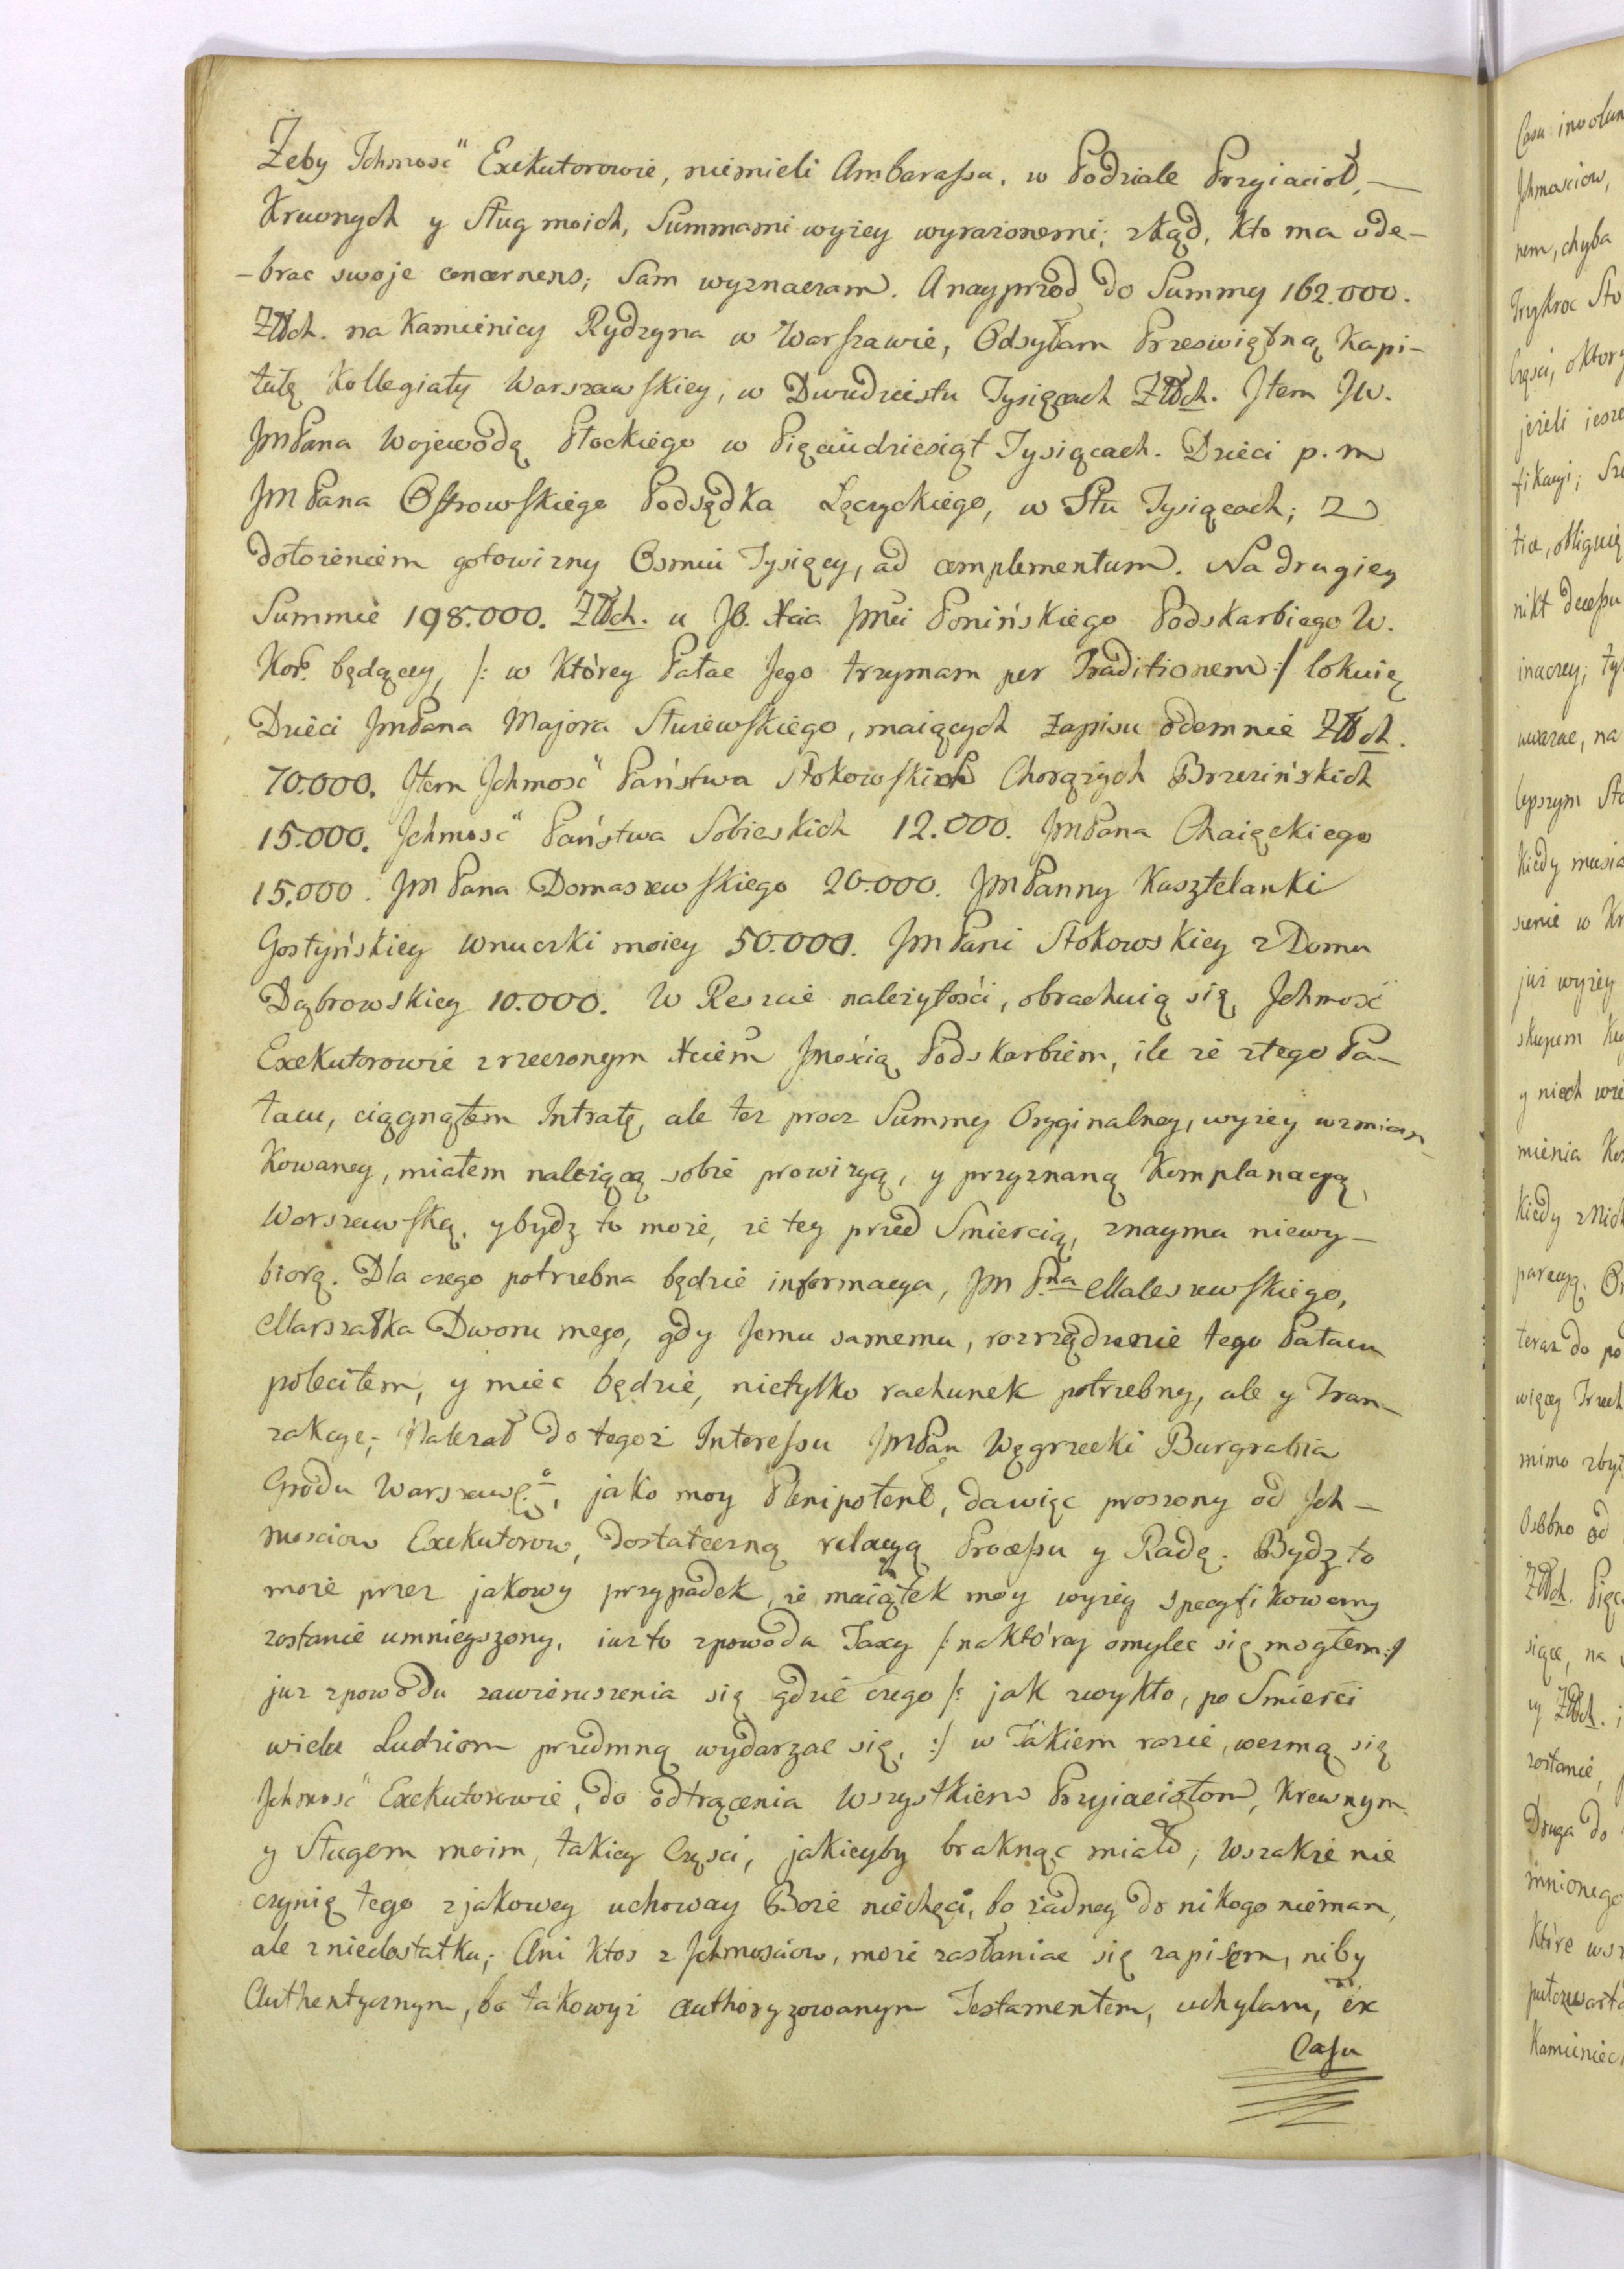 Żeby Ichmosć Exekutorowie, niemieli Ambarassu, w Podziale Przyiacioł,—
Krewnych y Sług moich, Summami wyżey wyrażonemi; zkąd, kto ma ode–
–brac swoje concernens; Sam wyznaczam. A nayprzod do Summy 162.000.
Złłch. na Kamienicy Rydzyna w Warszawie, Odsyłam Przeswiętną Kapi–
tułę Kollegiaty Warszawskiey, w Dwudziestu Tysięcach Złłch. Item JW.
JmPana Wojewodę Płockiego w Pięciudziesiąt Tysiącach. Dzieci p. m
JmPana Ostrowskiego Podsędka Łęczyckiego, w Stu Tysiącach; z
dołożeniem gotowizny Osmiu Tysięcy, ad complementum. Na drugiey
Summie 198.000. Złłch. u JO. Xcia Jmci Ponińskiego Podskarbiego W.
Kor. będącey, /: w Którey Pałac Jego trzymam per Traditionem :/ lokuię
Dzieci JmPana Majora Służewskiego, maiących Zapisu odemnie Złłch.
70.000. Item Ichmosć Państwa Stokowskich Chorążych Brzezińskich
15.000. Ichmosć Państwa Sobieskich 12.000. JmPana Chaięckiego
15.000. JmPana Domaszewskiego 20.000. JmPanny Kasztelanki
Gostyńskiey wnuczki moiey 50.000. JmPani Stokowskiey z Domu
Dąbrowskiey 10.000. W Reszcie należytości, obrachuią się Ichmość
Exekutorowie z rzeczonym Xciem Jmością Podskarbiem, ile że z tego Pa–
łacu, ciągnąłem Intratę, ale też procz Summy Oryginalney, wyżey wzmian–
Kowaney, miałem należącą sobie prowizyą, y przyznaną Komplanacyą
Warszawską, y bydz to może, że tey przed Smiercią, znayma niewy–
biorę. Dla czego potrzebna będzie informacya, Jm Pna Maleszewskiego,
Marszałka Dworu mego, gdy Jemu samemu, rozrządzenie tego Pałacu
poleciłem, y miec będzie, nietylko rachunek potrzebny, ale y Tran–
zakcye; Należał do tegoż Interessu JmPan Węgrzecki Burgrabia
Grodu Warszaws:o, jako moy Plenipotent, da więc proszony od Ich–
mosciow Exekutorow, Dostateczną relacyą Processu y Radę. Bydz to
może przez jakowy przypadek, że maiątek moy wyżey specyfikowany
zostanie umnieyszony, iuż to zpowodu Taxy /: na Którey omylec się mogłem :/
juz zpowodu zawieruszenia się gdzie czego /: jak zwykło, po Smierci
wielu Ludziom przedmną wydarzac się, :/ w Takiem razie, wezmą się
Ichmosć Exekutorowie, do odtrącenia Wszystkiem Przyiaciołom, Krewnym
y Sługom moim, takiey Częsci, jakieyby braknąc miało; Wszakże nie
czynię tego z jakowey uchoway Boże niechęci, bo żadney do nikogo niemam,
ale z niedostatku; Ani Ktos z Ichmosciow, może zasłaniac się zapisem, niby
Authentycznym, bo takowyż authoryzowanym Testamentem, uchylam, ex
Casu